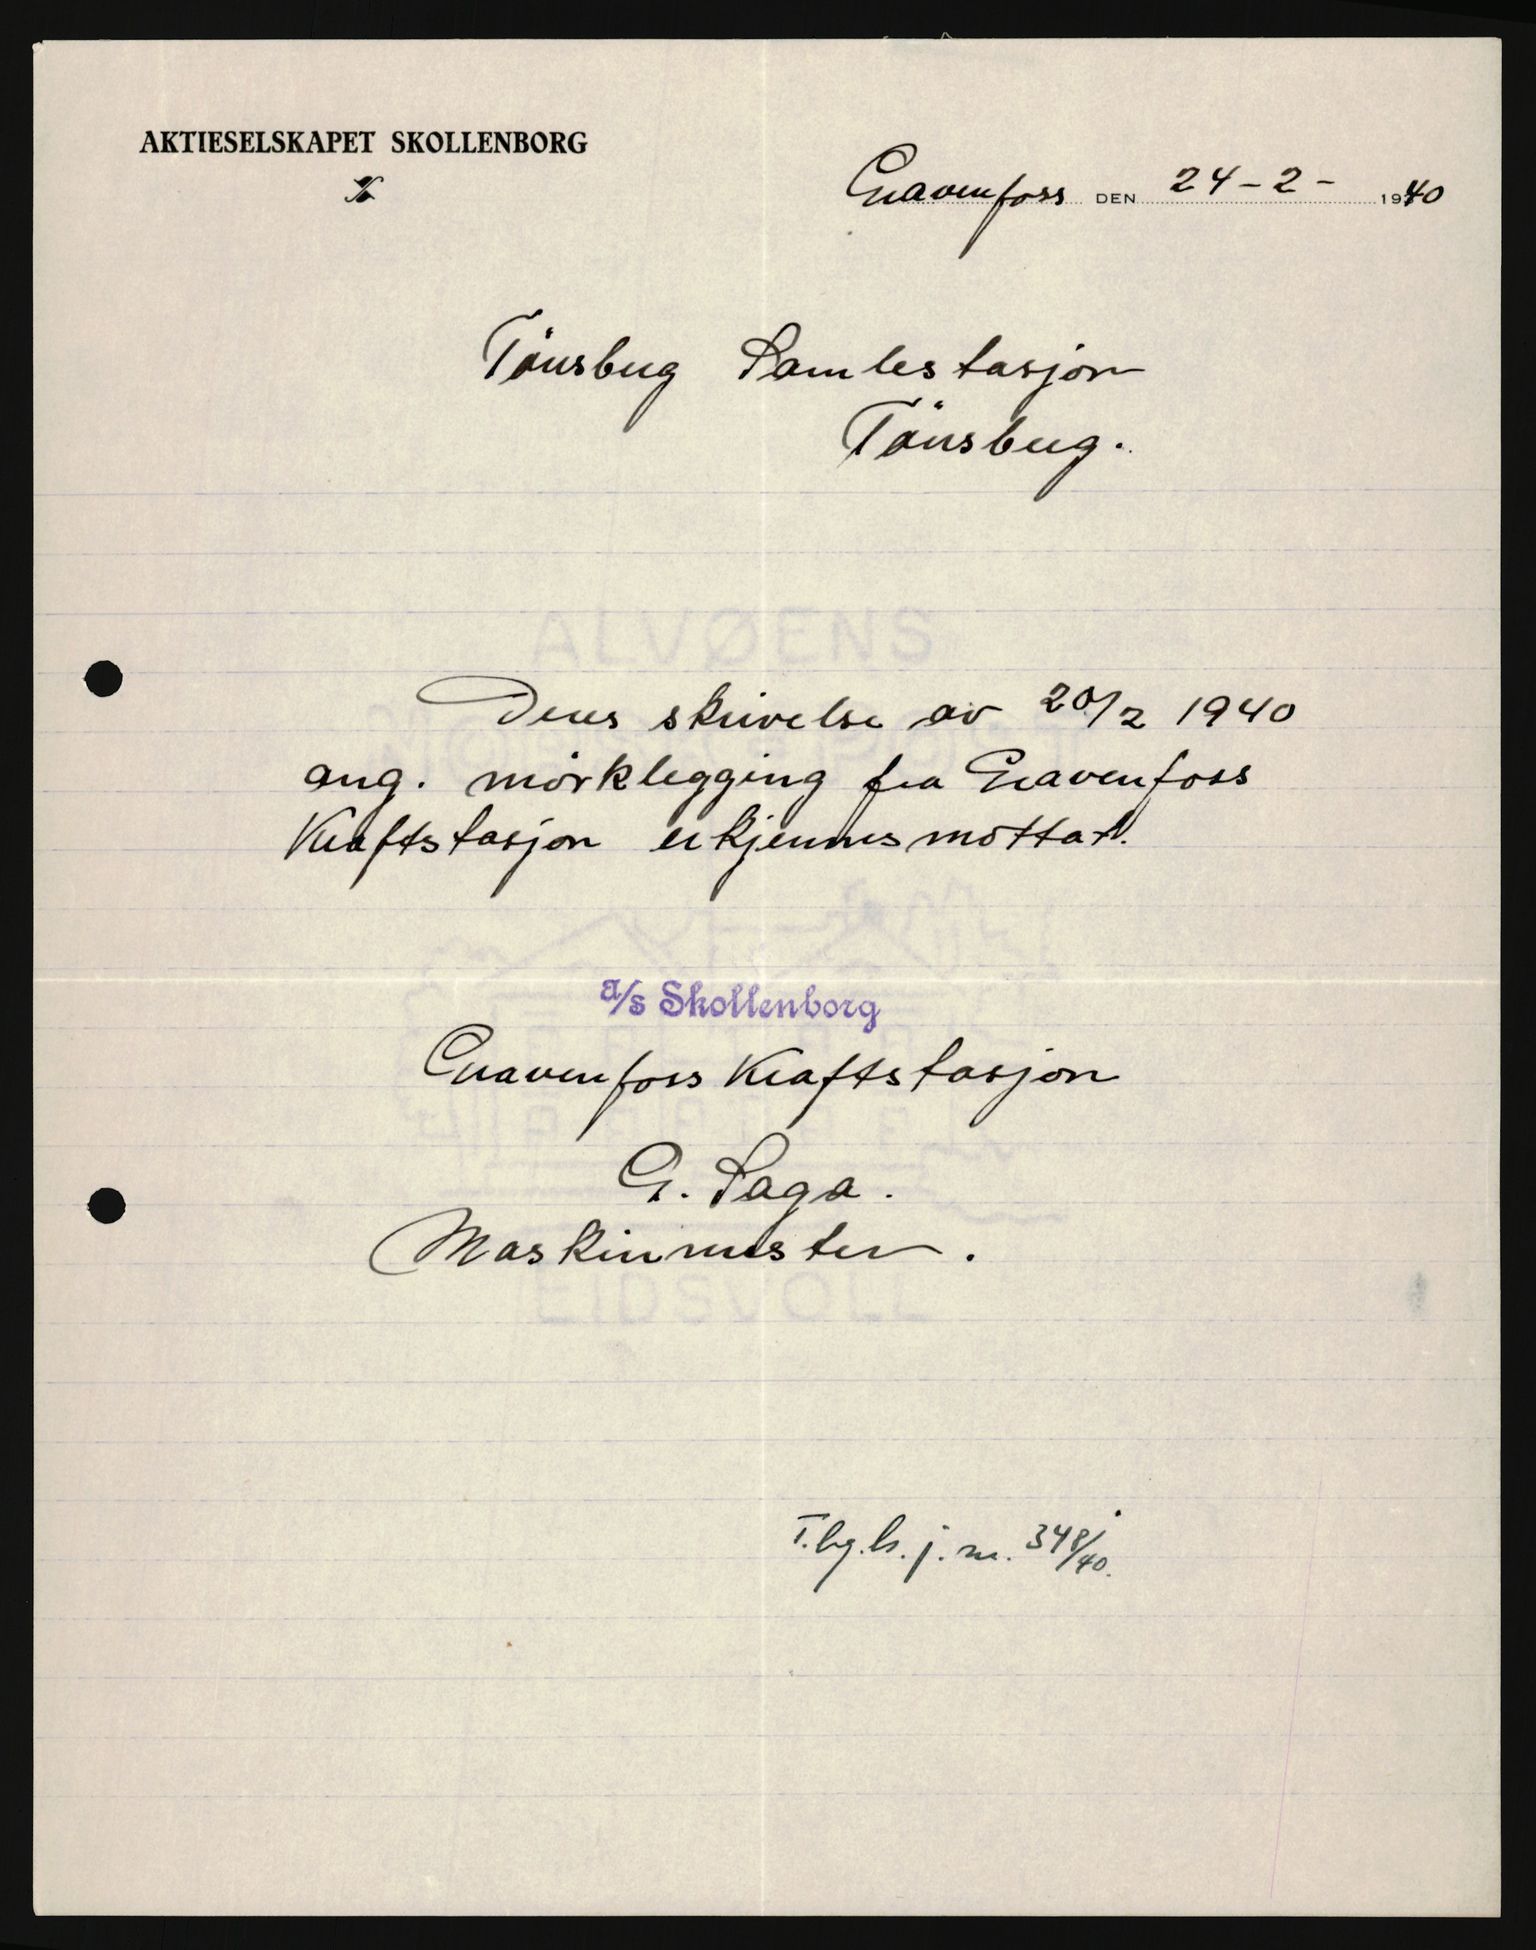 AKTIESELSKAPET SKOLLENBORG
Gravenfoss DEN 24-2- 1940
Tönsberg Samlestasjon
Tönsberg.
ALVØENS
Deres skrivelse av 20/2 1940
ang. mörklegging fra Gravenfoss
Kraftstasjon erkjennes mottat.
a/s Skollenborg
Gravenfoss Kraftstasjon
G. Saga.
Maskinmester.
EIDSVOLL
T.bg.b. j. nr. 348/40.